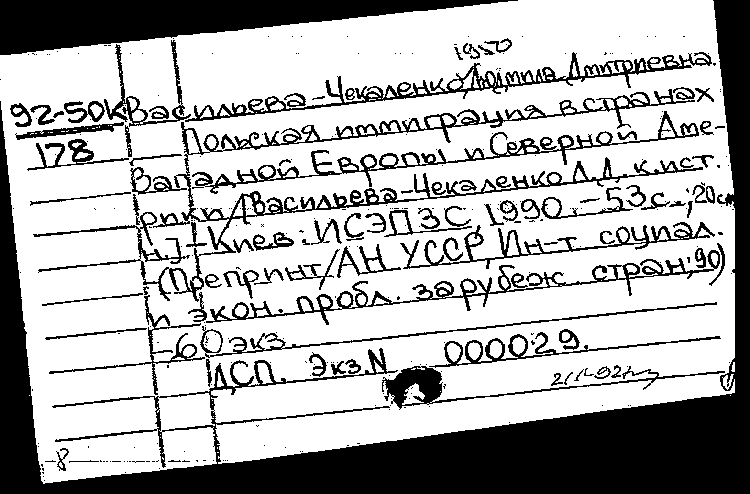 1950
Васильева-Чекаленко, Людмила Дмитриевна.
92-50К
178
Польская иммиграция в странах
Западной Европы и Северной Аме-
рики / [Васильева-Чекаленко Л.Д. к.ист.
н.]. - Киев: ИСЭПЗС, 1990. - 53 с.; 20 см
-(Препринт / АН УССР, Ин-т социал.
и экон. пробл. зарубеж. стран; 90)
-60 экз.
ДСП. Экз.N 000029.
8